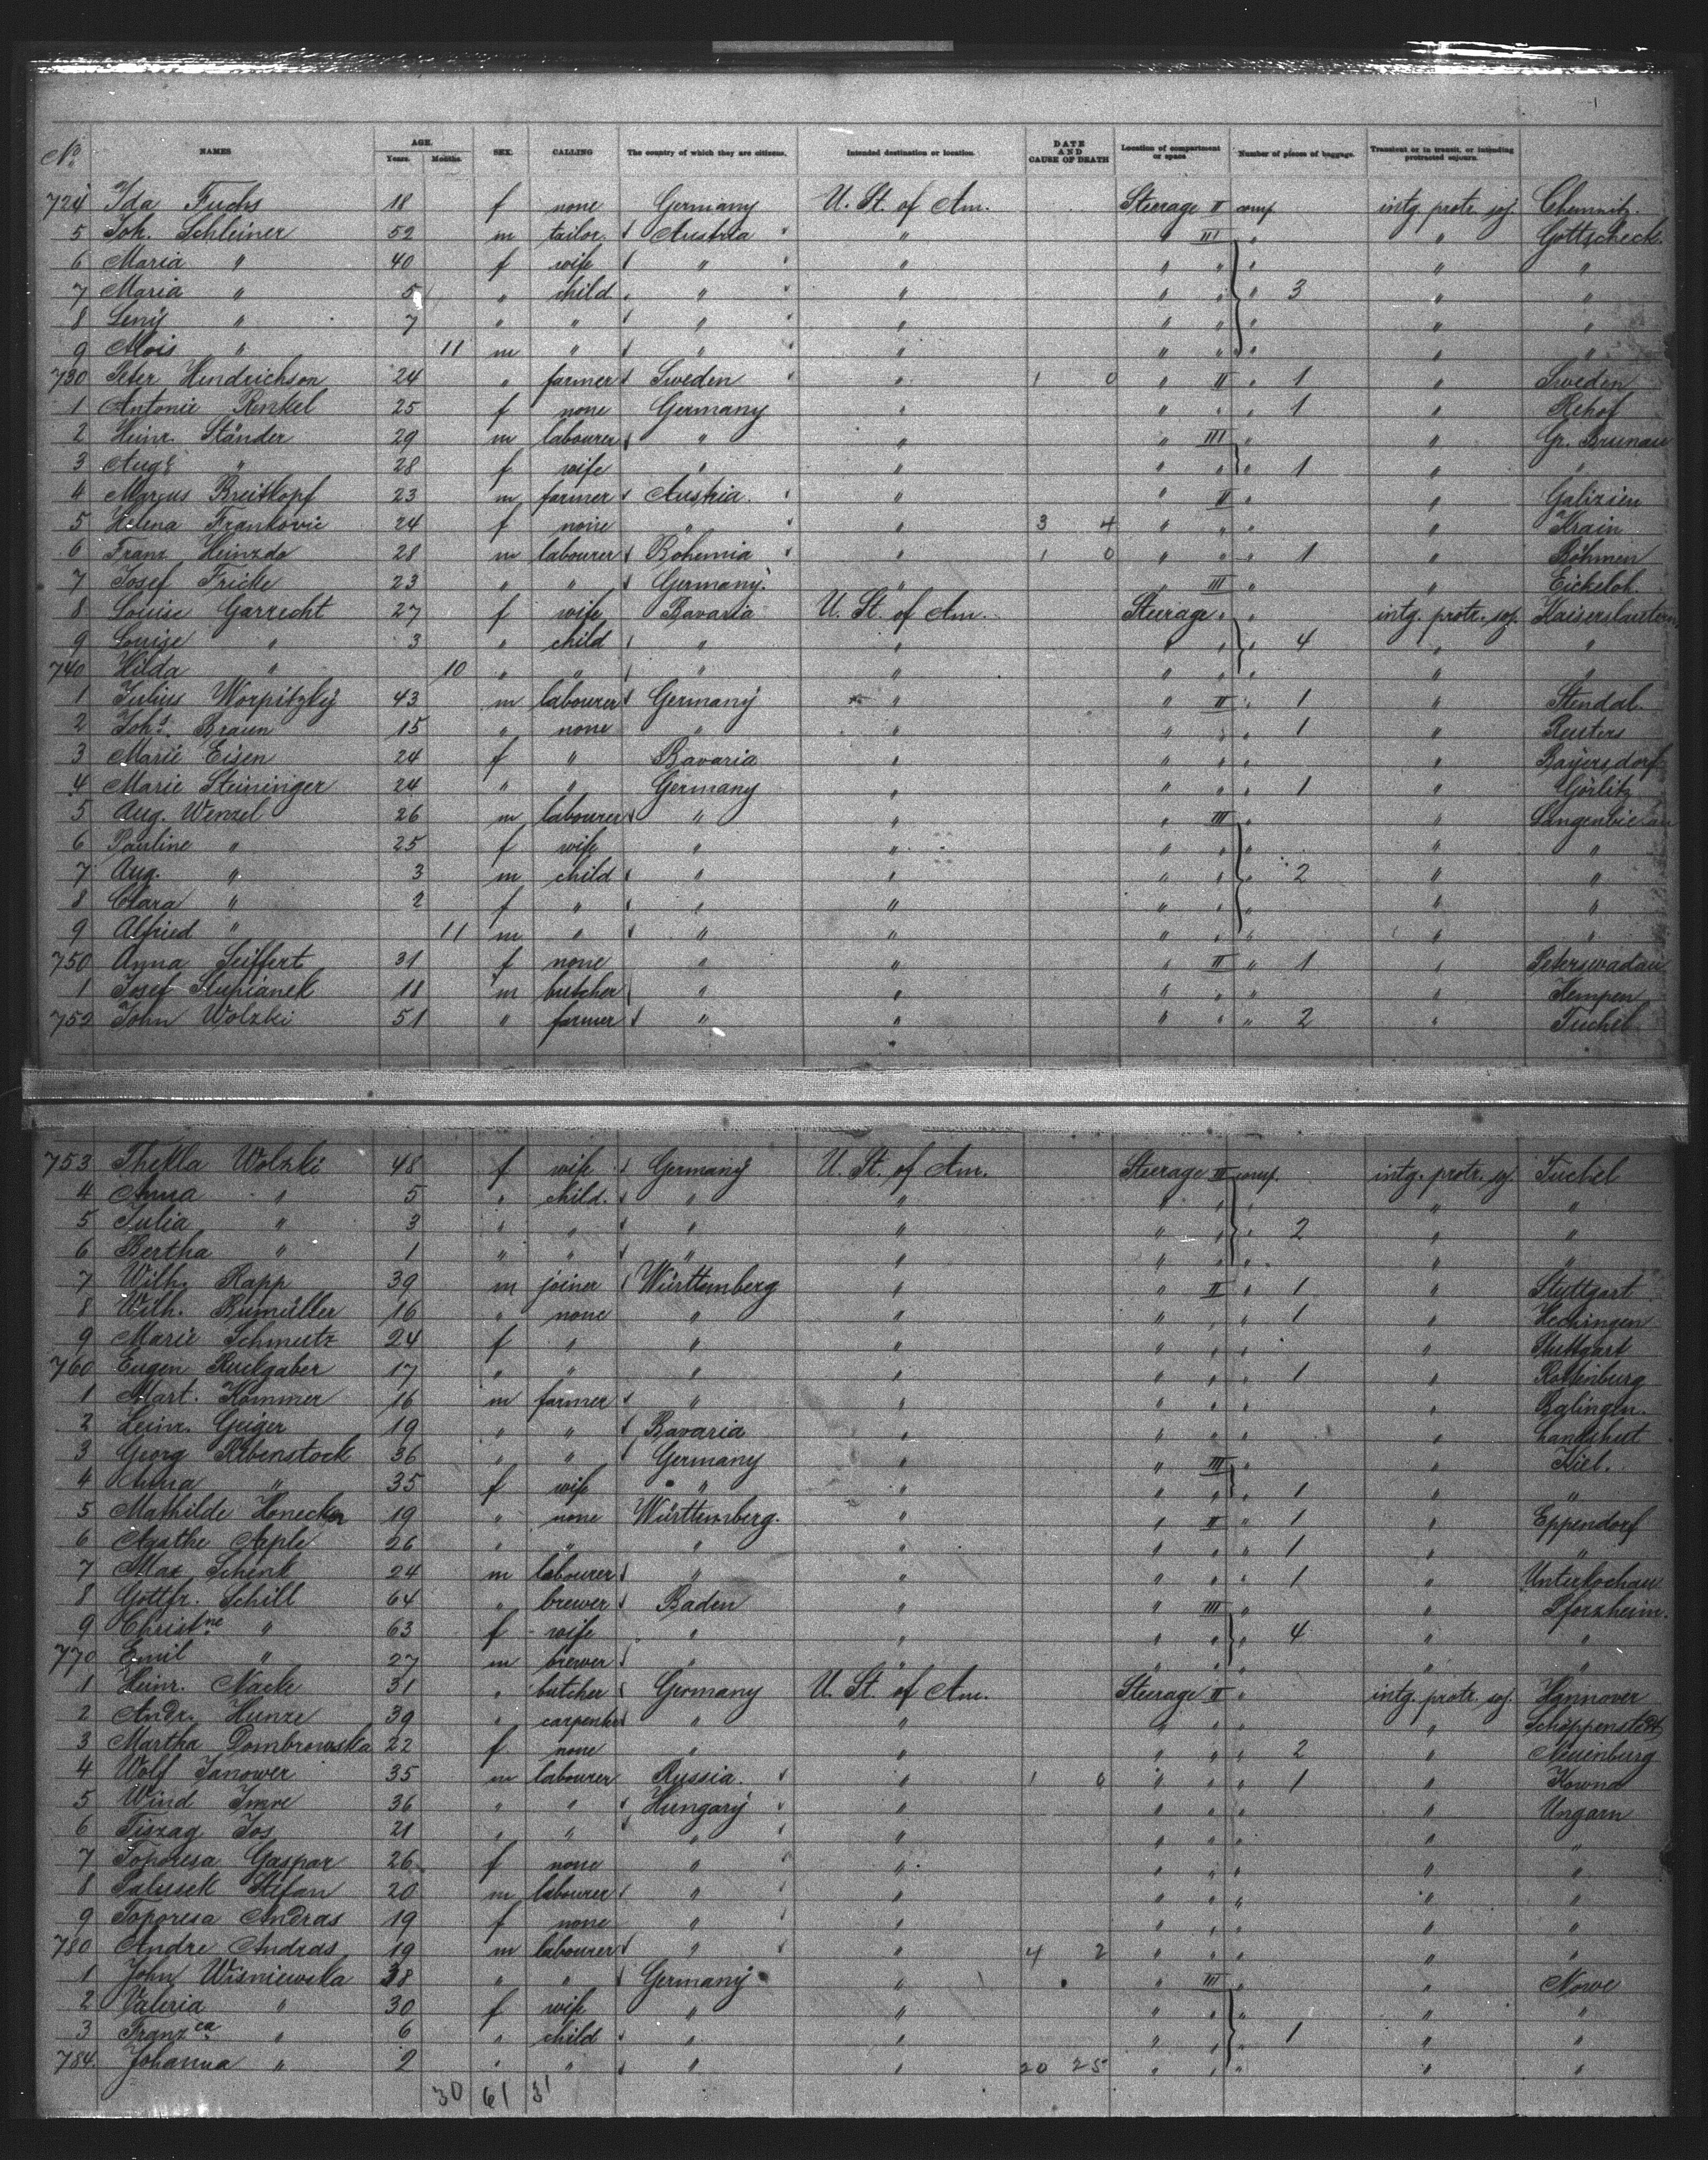 No. NAMES AGE. Years. Months. SEX. CALLING The country of which they are citizens. Intended destination or location. DATE AND CAUSE OF DEATH Location of compartment or space Number of pieces of baggage. Transient or in transit, or intending protracted sojourn.
724 Ida Fuchs 18 f none Germany U. St. of Am. Steerage II comp. intg. protr. soj. Chemnitz.
5 Joh. Schleiner 52 m tailor Austria " " III " " Gottscheck
6 Maria " 40 f wife " " " " " " "
7 Maria " 5 " child " " " " " 3 " "
8 Leny " 7 " " " " " " " " "
9 Alois " 11 m " " " " " " " "
730 Peter Hendrichson 24 " farmer Sweden " 1 0 " II " 1 " Sweden
1 Antonie Renkel 25 f none Germany " " " " 1 " Rehof
2 Heinr. Ständer 29 m labourer " " " III " " Gr. Brunau
3 Aug. " 28 f wife " " " " " 1 " "
4 Marcus Breitkopf 23 m farmer Austria. " " II " " Galizien
5 Helena Frankovic 24 f none " " 3 4 " " " " Krain
6 Franz Heinzdo 28 m labourer Bohemia " 1 0 " " " 1 " Böhmen
7 Josef Fricke 23 " " Germany. " " III " " Eickeloh.
8 Louise Garrecht 27 f wife Bavaria U. St. of Am. Steerage " " intg. protr. soj. Kaiserslautern
9 Louise " 3 " child " " " " " 4 " "
740 Hilda " 10 " " " " " " " " "
1 Julius Worpitzky 43 m labourer Germany " " II " 1 " Stendal.
2 Johs. Braun 15 " none " " " " " 1 " Reuters
3 Marie Eisen 24 f " Bavaria " " " " " Bayersdorf
4 Marie Steininger 24 " " Germany " " " " 1 " Görlitz
5 Aug. Wenzel 26 m labourer " " " III " " Langenbielau
6 Pauline " 25 f wife " " " " " " "
7 Aug. " 3 m child " " " " " 2 " "
8 Clara " 2 f " " " " " " " "
9 Alfried " 11 m " " " " " " " "
750 Anna Seiffert 31 f none " " " II " 1 " Peterswadau
1 Josef Slupianek 18 m butcher " " " " " " Kempen
752 John Wolzki 51 " farmer " " " " " 2 " Tuchel
753 Thekla Wolzki 48 f wife Germany U. St. of Am. Steerage III comp. intg. protr. soj. Tuchel
4 Anna " 5 " child. " " " " " " "
5 Julia " 3 " " " " " " " 2 " "
6 Bertha " 1 " " " " " " " " "
7 Wilh. Rapp 39 m joiner Württemberg " " II " 1 " Stuttgart
8 Wilh. Bumüller 16 " none " " " " " 1 " Hechingen
9 Marie Schmutz 24 f " " " " " " " Stuttgart
760 Eugen Ruckgaber 17 " " " " " " " 1 " Rottenburg
1 Mart. Kommer 16 m farmer " " " " " " Balingen.
2 Heinr. Geiger 19 " " Bavaria " " " " " Landshut
3 Georg Rebenstock 36 " " Germany " " III " " Kiel.
4 Anna " 35 f wife " " " " " 1 " "
5 Mathilde Honecker 19 " none Württemberg. " " II " 1 " Eppendorf
6 Agathe Aeple 26 " " " " " " " 1 " "
7 Max Schenk 24 m labourer " " " " " 1 " Unterkochau
8 Gottfr. Schill 64 " brewer Baden " " III " " Pforzheim.
9 Christne " 63 f wife " " " " " 4 " "
770 Emil " 27 m brewer " " " " " " "
1 Heinr. Nacke 31 " butcher Germany U. St. of Am. Steerage II " intg. protr. soj. Hannover
2 Andr. Hunze 39 " carpenter " " " " " " Schöppenstedt
3 Martha Dombrowska 22 f none " " " " " 2 " Neuenburg
4 Wolf Janower 35 m labourer Russia. " 1 0 " " " 1 " Kowna
5 Wind Imre 36 " " Hungary " " " " " Ungarn
6 Tiszag Jos 21 " " " " " " " " "
7 Toporesa Gaspar 26 f none " " " " " " "
8 Palusek Stefan 20 m labourer " " " " " " "
9 Toporesa Andras 19 f none " " " " " " "
780 Andre Andras 19 m labourer " " 4 2 " " " " "
1 John Wisniewska 38 " " Germany " " III " " Nowe
2 Valeria " 30 f wife " " " " " " "
3 Franzca " 6 " child " " " " " 1 " "
784 Johanna " 2 " " " " 20 25 " " " " "
30 61 31